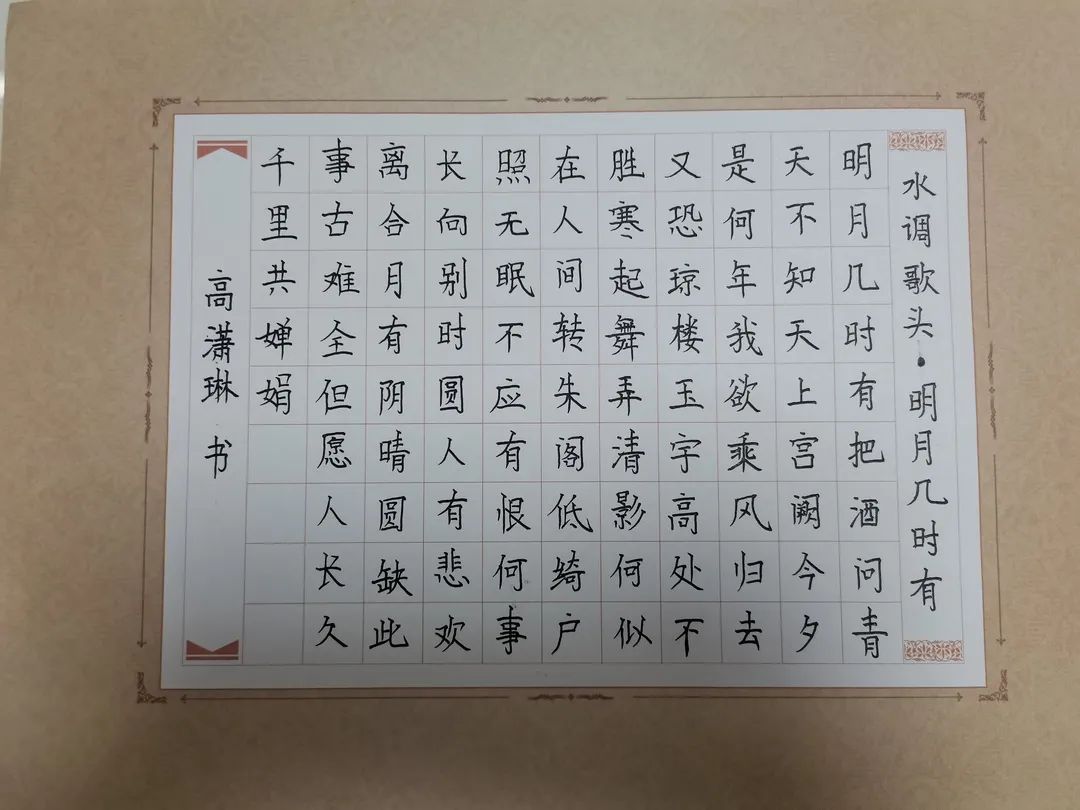 水调歌头·明月几时有
明月几时有把酒问青
天不知天上宫阙今夕
是何年我欲乘风归去
又恐琼楼玉宇高处不
胜寒起舞弄清影何似
在人间转朱阁低绮户
照无眠不应有恨何事
长向别时圆人有悲欢
离合月有阴晴圆缺此
事古难全但愿人长久
千里共婵娟
高潇琳 书